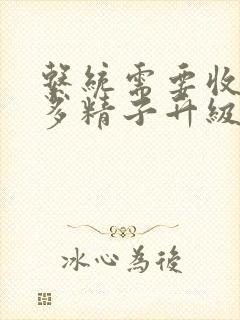 繫統需要收
多精子升級
冰心為後